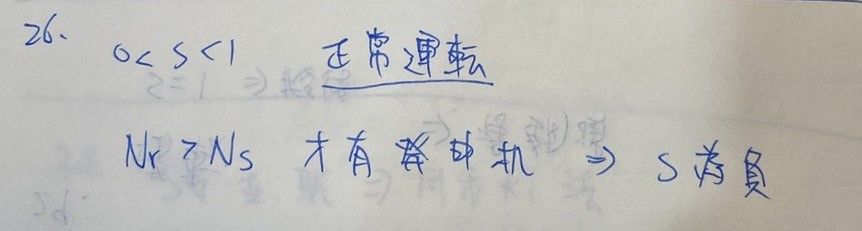 26. 0 < S < 1 正常運転
Nr > Ns 才有發申机 ⇒ S為負